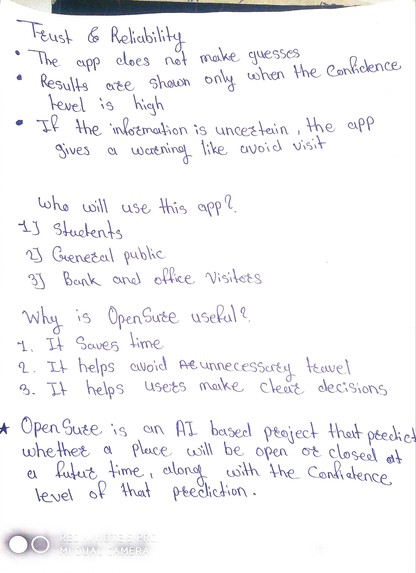 Trust & Reliability
• The app does not make guesses
• Results are shown only when the Confidence
level is high
• If the information is uncertain, the app
gives a warning like avoid visit
Who will use this app?
1] Students
2] General public
3] Bank and office Visitors
Why is OpenSure useful?
1. It Saves time
2. It helps avoid unnecessary travel
3. It helps users make clear decisions
★ OpenSure is an AI based project that predict
whether a place will be open or closed at
a futur time, along with the Confidence
level of that prediction.
REDMI NOTE 5 PRO
MI DUAL CAMERA